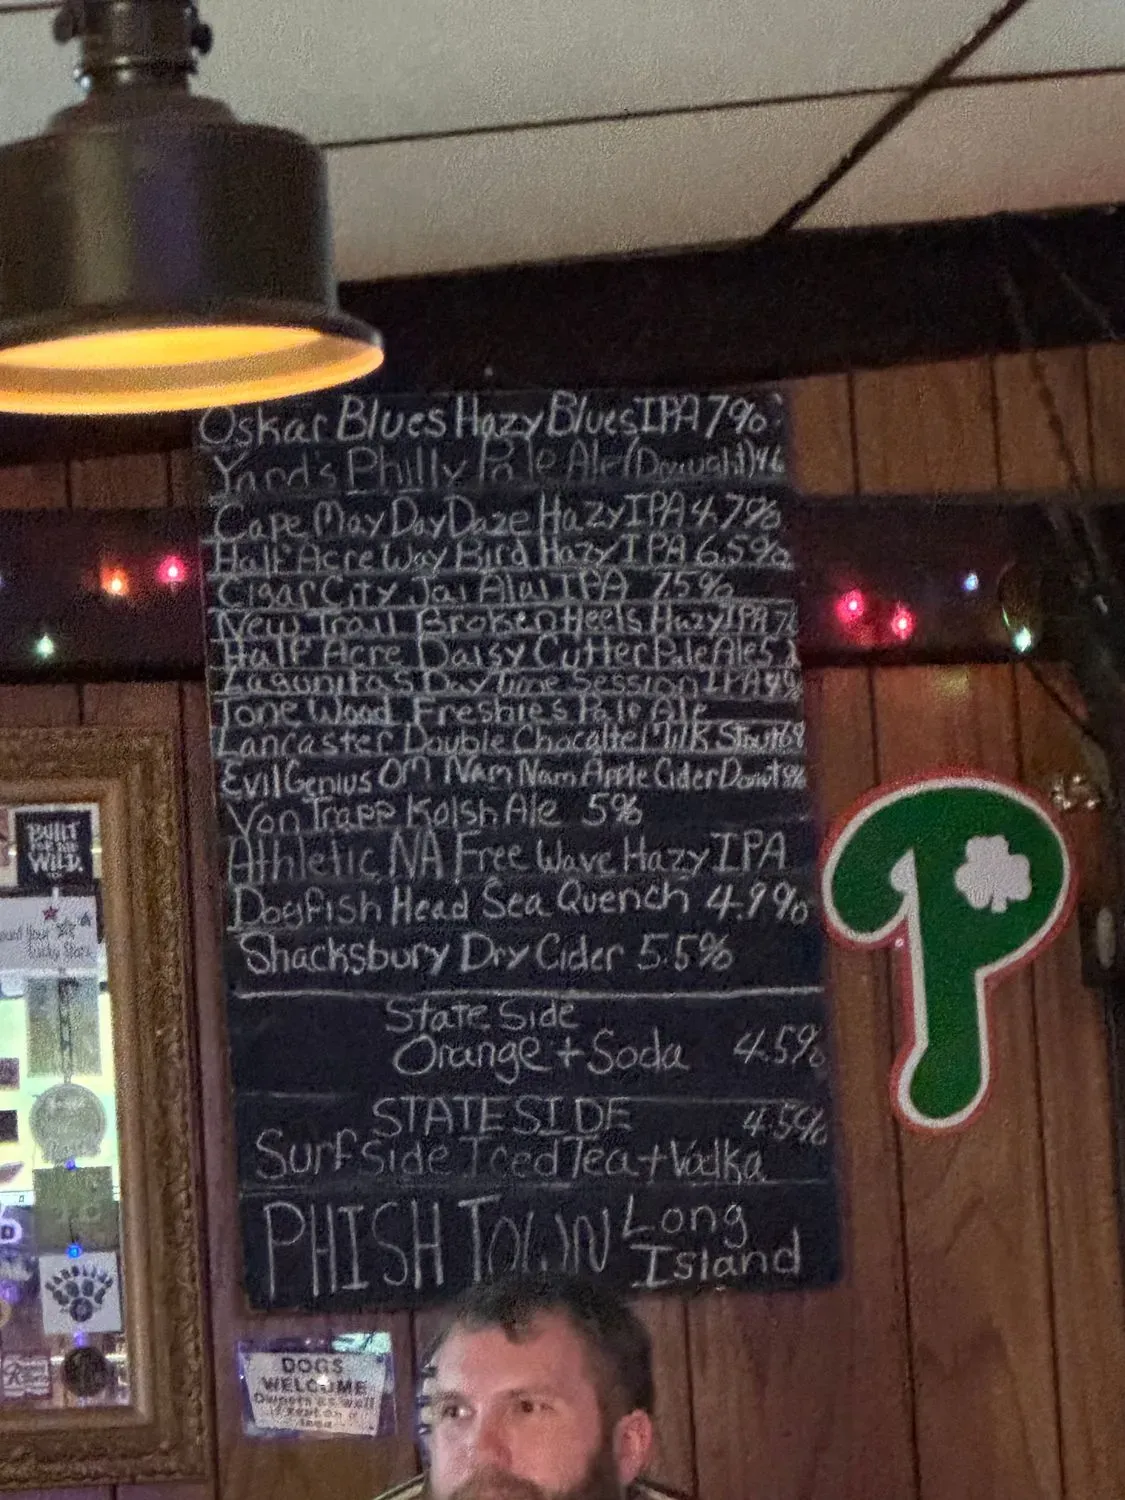 Oskar Blues Hazy Blues IPA 7%
Yard's Philly Pale Ale (Draught) 4.6
Cape May Day Daze Hazy IPA 4.7%
Half Acre Way Bird Hazy IPA 6.5%
Cigar City Jai Alai IPA 7.5%
New Trail Broken Heels Hazy IPA 7%
Half Acre Daisy Cutter Pale Ale 5.2
Lagunitas Day Time Session IPA 4%
Tone Wood Freshies Pale Ale
Lancaster Double Chocalte Milk Stout
Evil Genius OM Nam Nam Apple Cider Donut
Von Trapp Kolsh Ale 5%
Athletic NA Free Wave Hazy IPA
Dogfish Head Sea Quench 4.9%
Shacksbury Dry Cider 5.5%
State Side
Orange + Soda 4.5%
STATESIDE 4.5%
Surfside Iced Tea + Vodka
PHISH TOWN Long
Island
P
BUILT
FOR THE
WILD.
DOGS
WELCOME
Owners as well